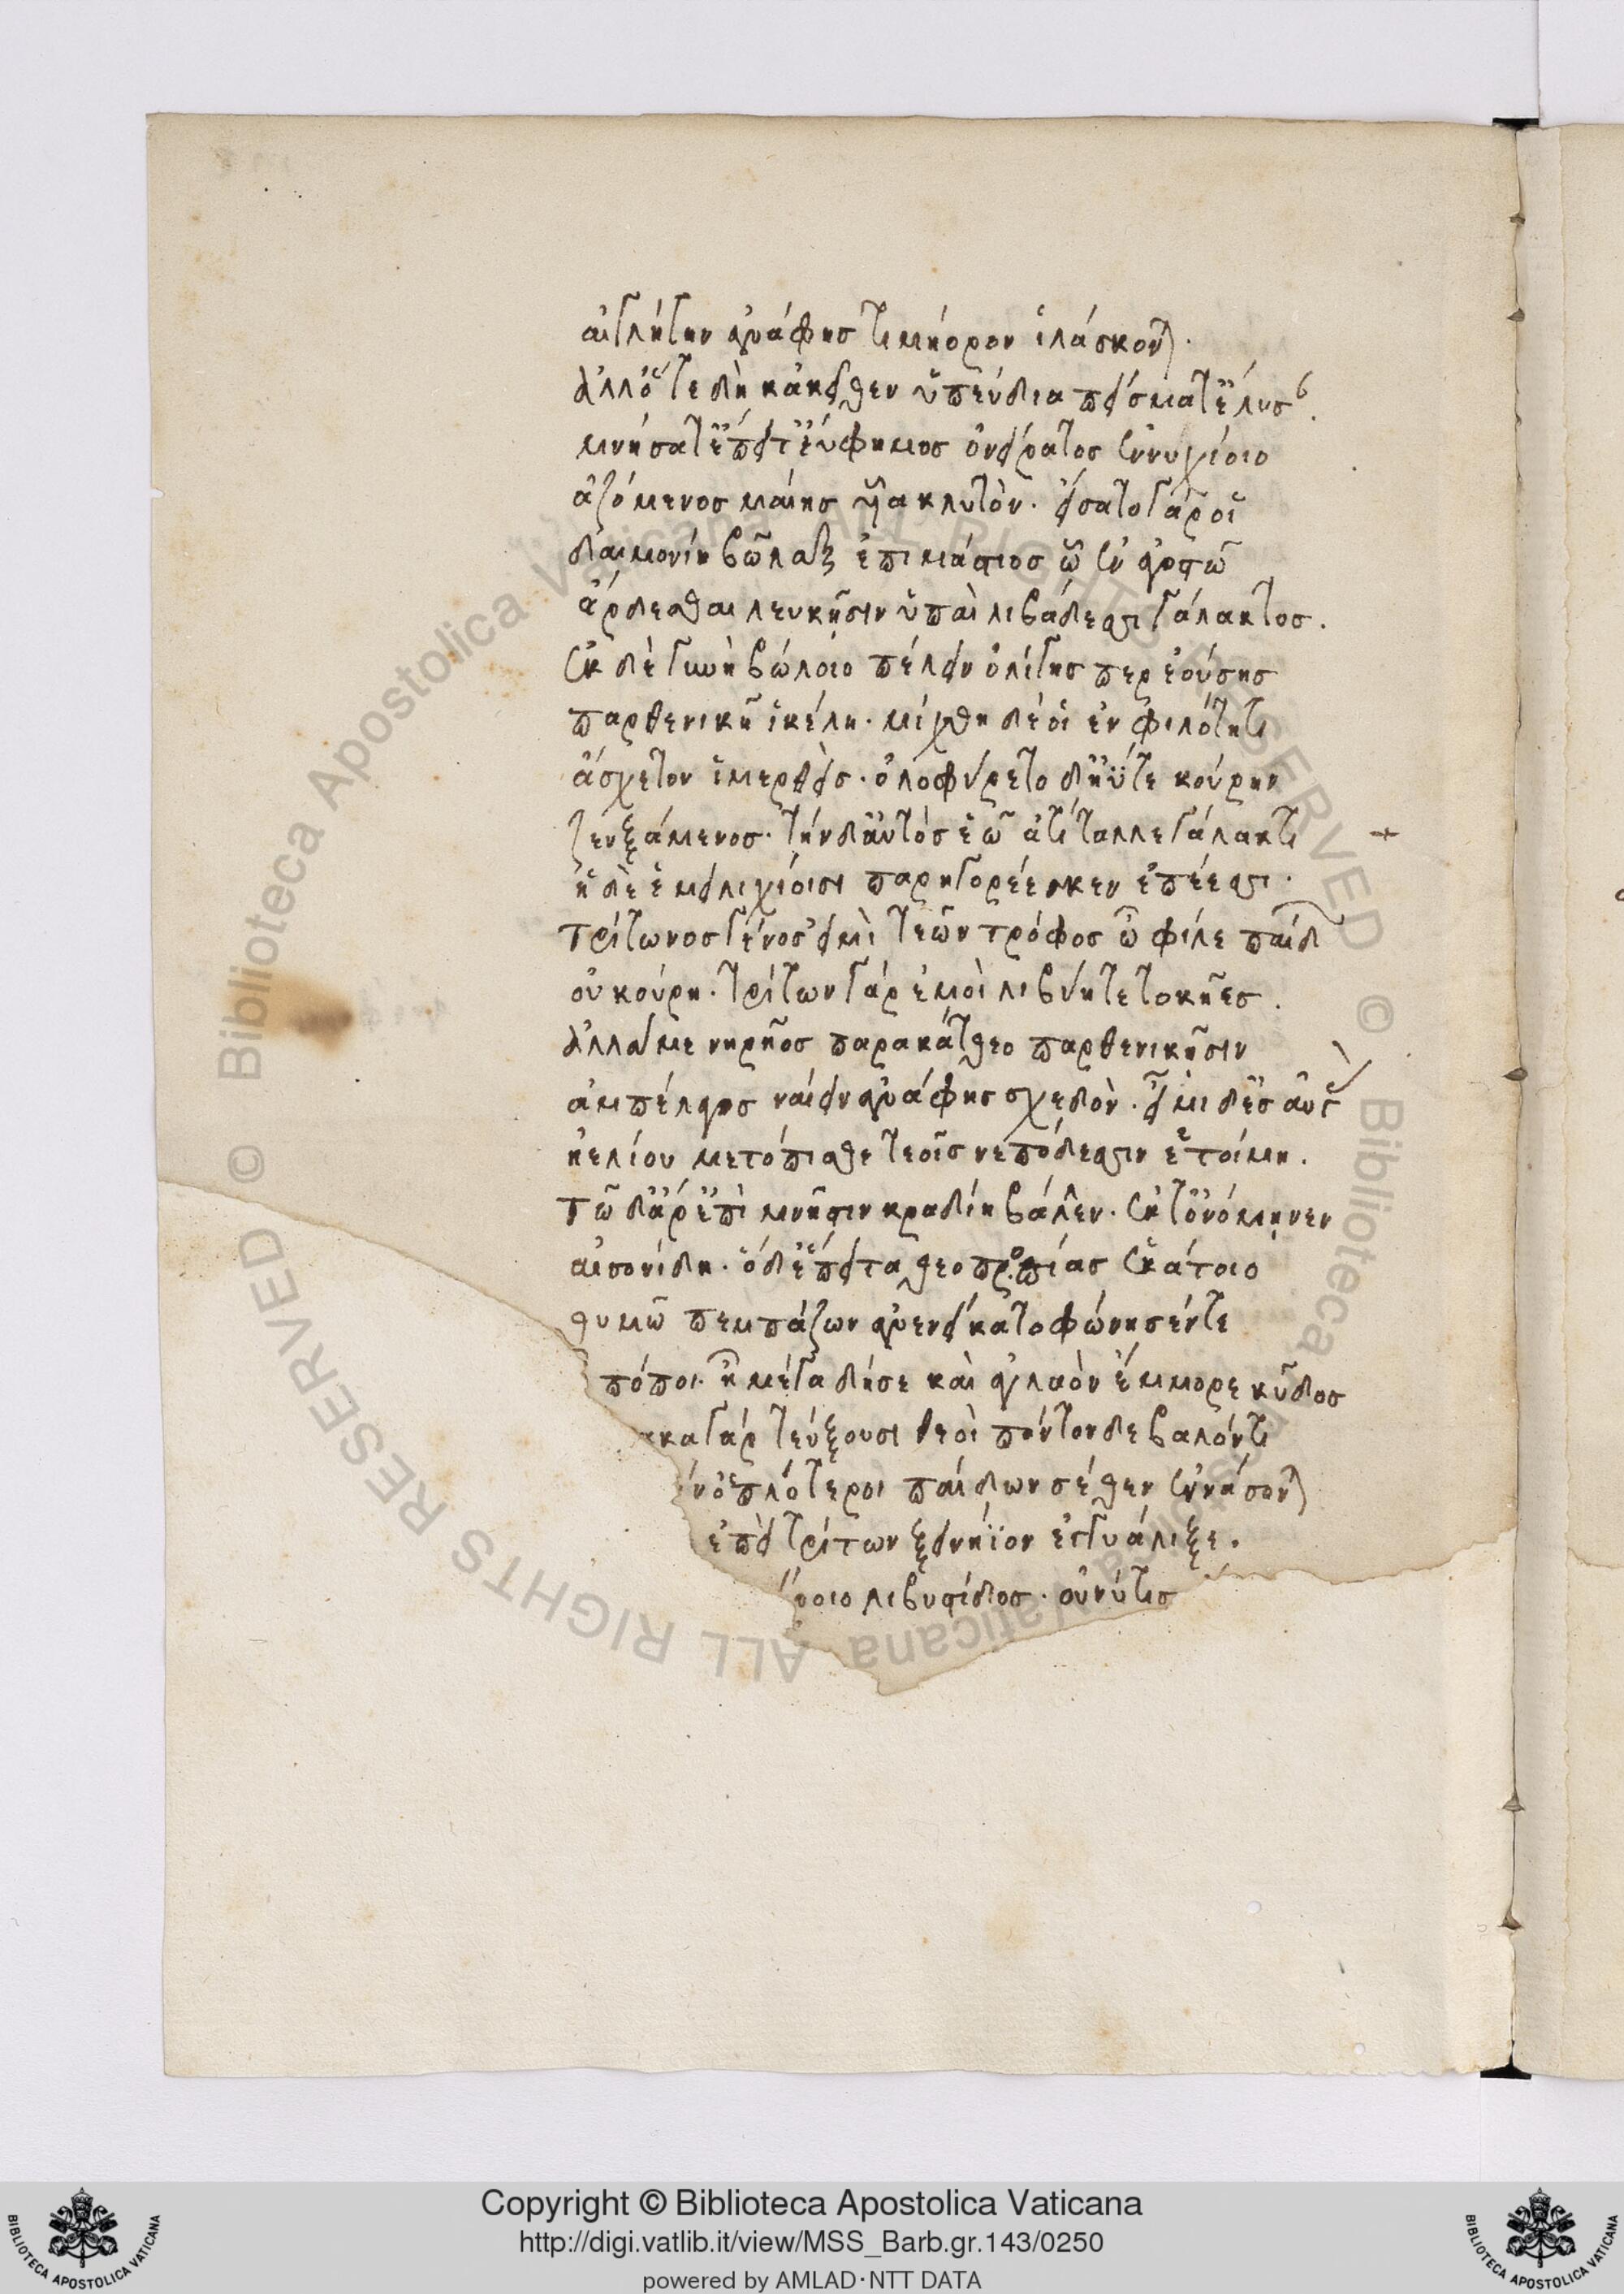 αἰγλήτην ἀνάφης τιμήορον ἱλάσκονται.
ἀλλ' ὅτε δὴ κἀκεῖθεν ὑπεύδια πείσματ' ἔλυσαν.
μνήσατ' ἔπειτ' εὔφημος ὀνείρατος ἐννυχίοιο
ἁζόμενος μαίης υἷα κλυτὸν. εἴσατο γάρ οἱ
δαιμονίη βῶλαξ ἐπιμάστιος ᾧ ἐν ἀγοστῷ
ἄρδεσθαι λευκῇσιν ὑπαὶ λιβάδεσσι γάλακτος.
ἐκ δὲ γυνὴ βώλοιο πέλειν ὀλίγης περ ἐούσης
παρθενικῇ ἰκέλη. μίχθη δέ οἱ ἐν φιλότητι
ἄσχετον ἱμερθείς. ὀλοφύρετο δ' ἠΰτε κούρην
ζευξάμενος. τήν δ' αὐτὸς ἑῷ ἀτίταλλε γάλακτι
ἡ δὲ ἑ μειλιχίοισι παρηγορέεσκεν ἐπέεσσι.
τρίτωνος γένος εἰμὶ τεῶν τρόφος ὦ φίλε παίδων
οὐ κούρη. τρίτων γάρ ἐμοὶ λιβύη τε τοκῆες.
ἀλλά με νηρῆος παρακάτθεο παρθενικῇσιν
ἀμπέλαγος ναίειν ἀνάφης σχεδὸν. εἶμι δ' ἐς αὐγὰς
ἠελίου μετόπισθε τεοῖς νεπόδεσσιν ἑτοίμη.
τῷ δ' ἄρ' ἐπὶ μνῆστιν κραδίη βάλεν. ἔκ τ' ὀνόμηνεν
αἰσονίδη. ὁ δ' ἔπειτα θεοπροπίας ἑκάτοιο
θυμῷ πεμπάζων ἀνενείκατο φώνησέν τε
πόποι. ἦ μέγα δή σε καὶ ἀγλαὸν ἔμμορε κῦδος
ακα γάρ τεύξουσι θεοὶ πόντονδε βαλόντι
ἵν' ὁπλότεροι παίδων σέθεν ἐννάσονται
ἐπεὶ τρίτων ξεινήϊον ἐγγυάλιξε.
ίροιο λιβυστίδος. οὔ νύ τις
Copyright © Biblioteca Apostolica Vaticana
http://digi.vatlib.it/view/MSS_Barb.gr.143/0250
powered by AMLAD·NTT DATA